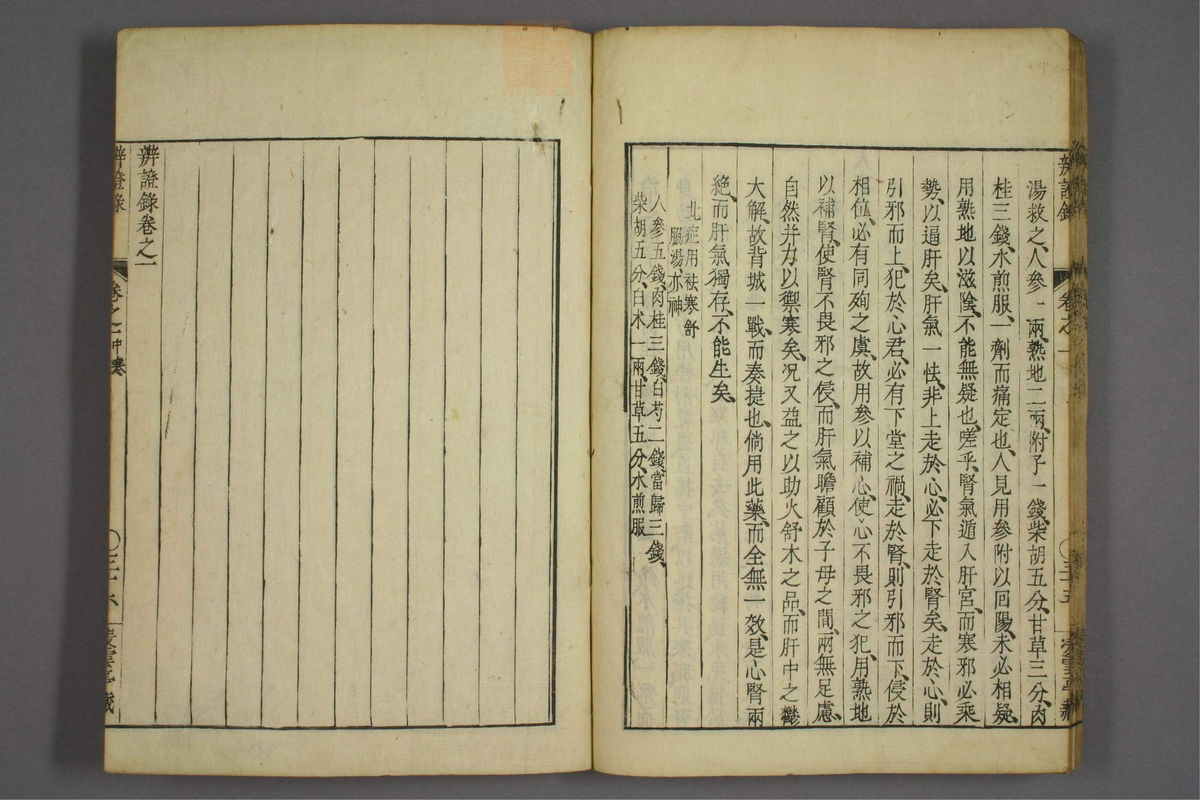 辨證錄
卷之一
三十五
湯救之、人參一兩、熟地二兩、附子一錢、柴胡五分、甘草三分、肉
桂三錢、水煎服、一劑而痛定也、人見用參附以回陽、未必相疑、
用熟地以滋陰、不能無疑也、嗟乎、腎氣遁入肝宮、而寒邪必乘
勢、以逼肝矣、肝氣一怯、非上走於心、必下走於腎矣、走於心、則
引邪而上、犯於心君、必有下堂之禍、走於腎、則引邪而下、侵於
相位、必有同殉之虞、故用參以補心、使心不畏邪之犯、用熟地
以補腎、使腎不畏邪之侵、而肝氣瞻顧於子母之間、兩無足慮、
自然并力以禦寒矣、况又益之以助火舒木之品、而肝中之鬱
大解、故背城一戰、而奏捷也、倘用此藥、而全無一效、是心腎兩
絕、而肝氣獨存、不能生矣、
此症用袪寒舒
脇湯、亦神
人參五錢、肉桂三錢、白芍二錢、當歸三錢、
柴胡五分、白术一兩、甘草五分、水煎服
辨證錄卷之一
辨證錄
卷之一中寒
三十六